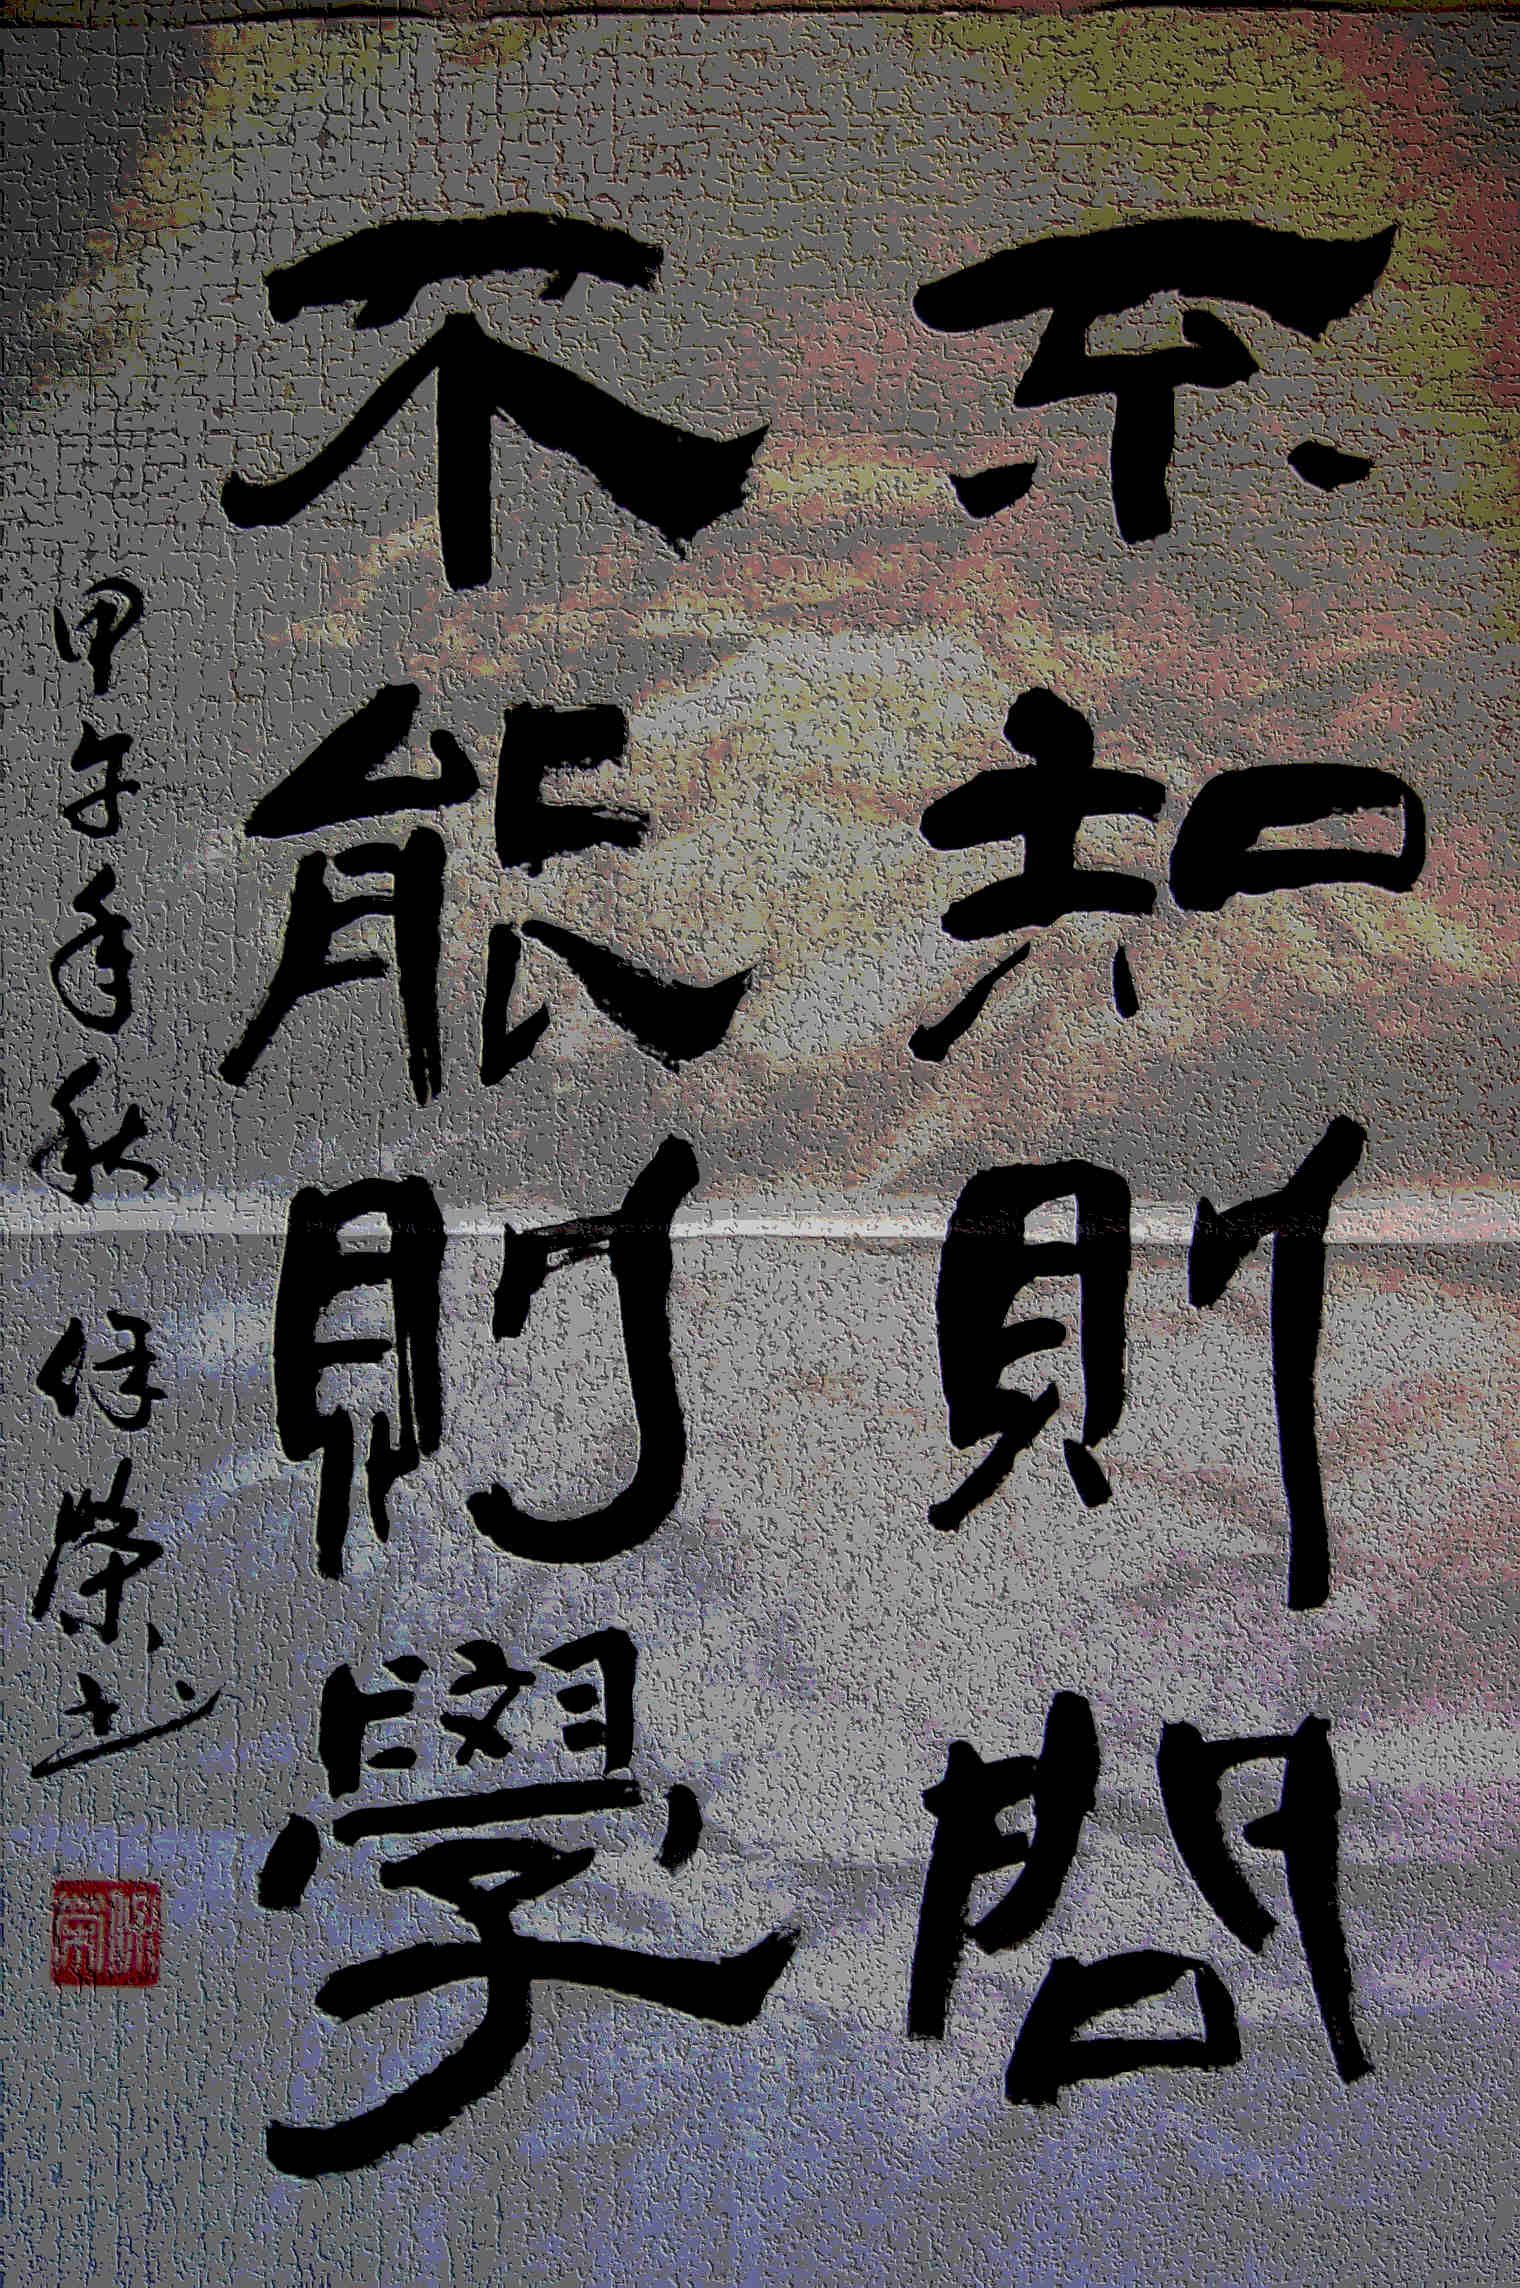 不知則問
不能則學
甲午年秋 保榮书